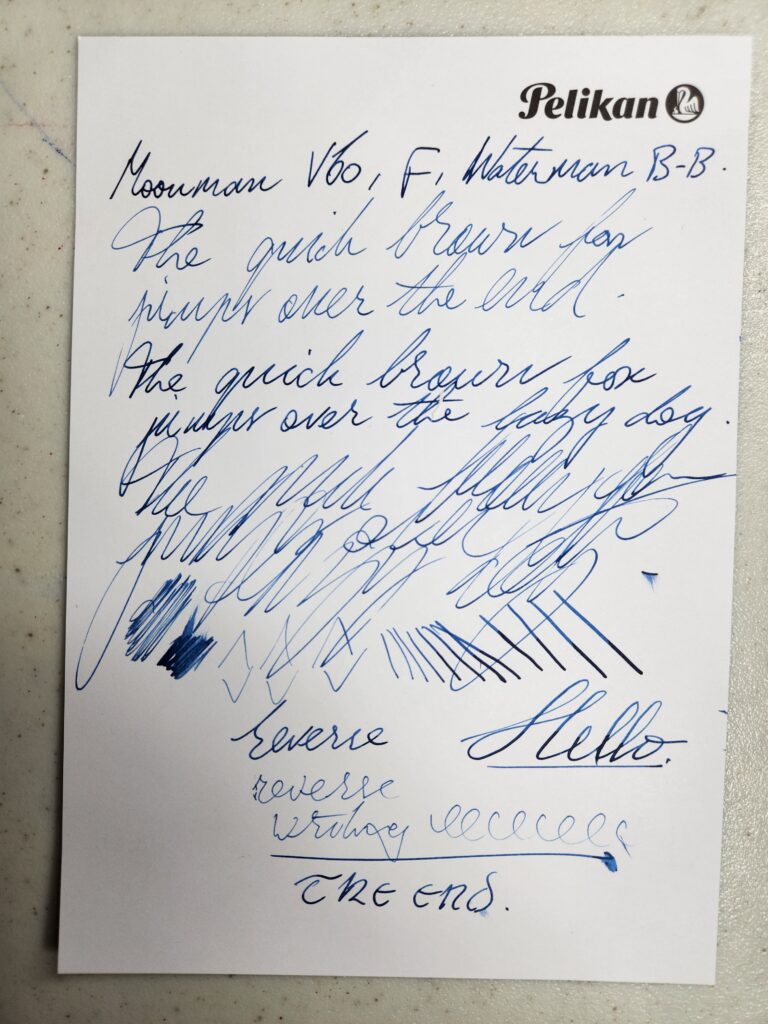 Pelikan
Moonman V60, F, Waterman B-B.
The quick brown fox
jumps over the end.
The quick brown fox
jumps over the lazy dog.
The quick
jumps over
lazy dog
reverse Hello.
reverse
writing
THE END.